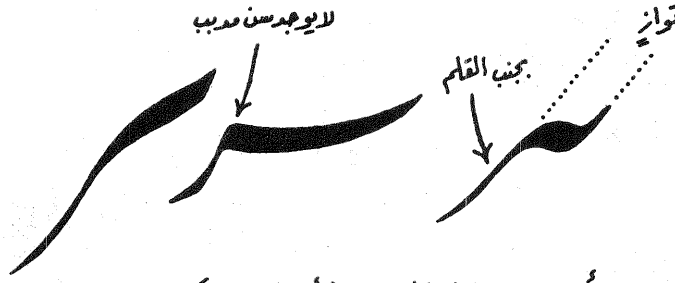 لا يوجد سن مدبب
تواز
بجنب القلم